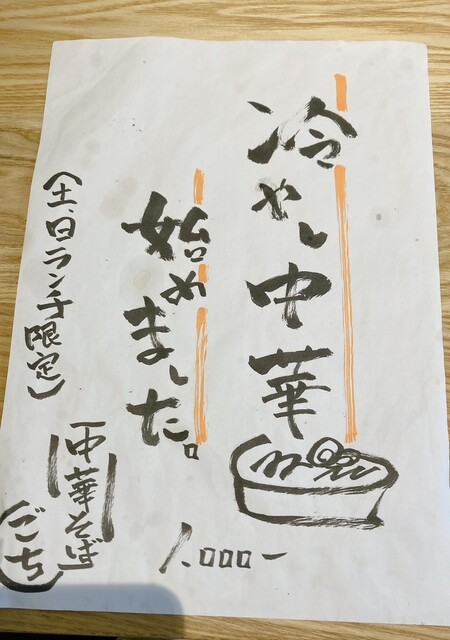 冷やし中華
始めました。
(土、日ランチ限定)
1.000ー
中華そば
ごち